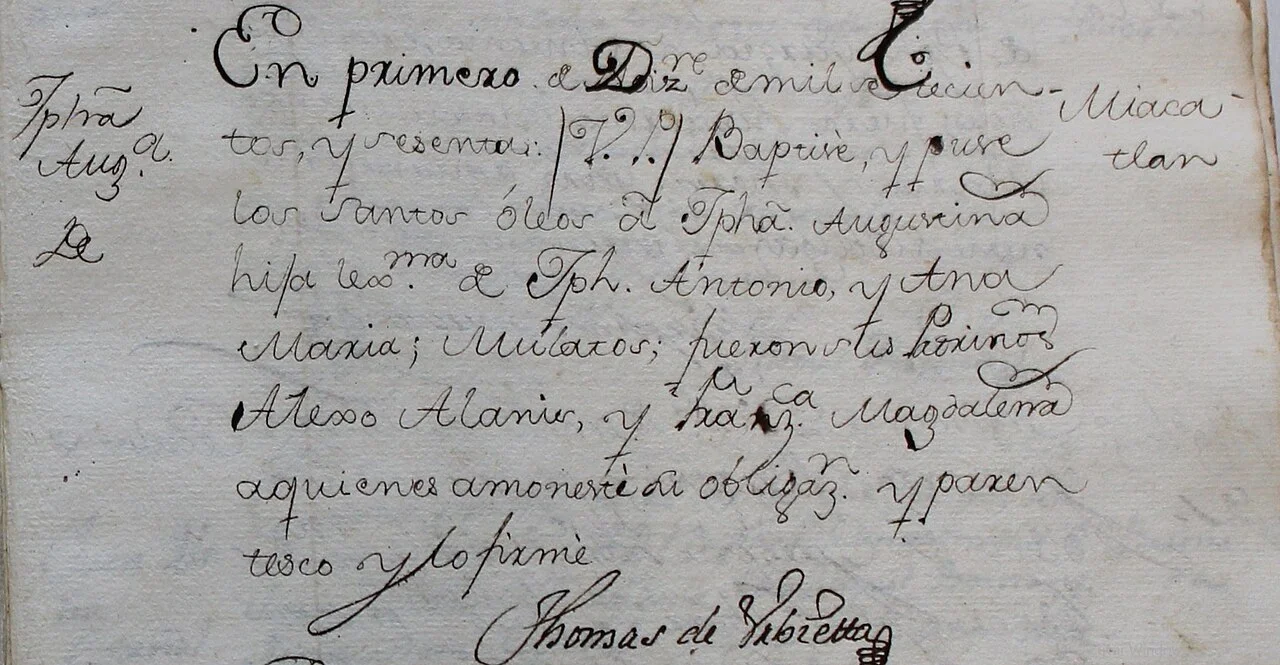 Jpha
Aug.a
De
En primero de Diz.re de mil setecien-
tos, y sesenta: |V.P.| Baptisè, y puse
los santos óleos â Jpha. Augustina
hija lex.ma de Jph. Antonio, y Ana
Maria; Mulatos; fueron sus Padrinos
Alexo Alanis, y Franz.ca Magdalena
aquienes amonestè su obligaz.n y paren
tesco y lo firmè
Thomas de Urbietta
Miaca-
tlan